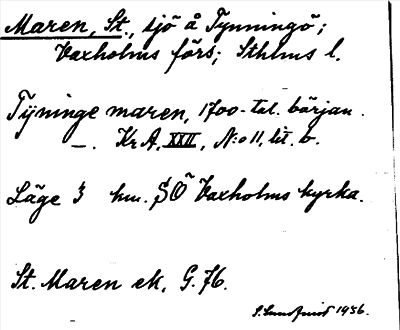 Maren, St., sjö å Tynningö;
Vaxholms förs; Sthlms l.
Tijninge maren, 1700-tal. början.
—. Kr A, XXII, N:o 11, lit. b.
Läge 3 km. SÖ Vaxholms kyrka.
St. Maren ek, G. 76.
S. Lundqvist 1936.